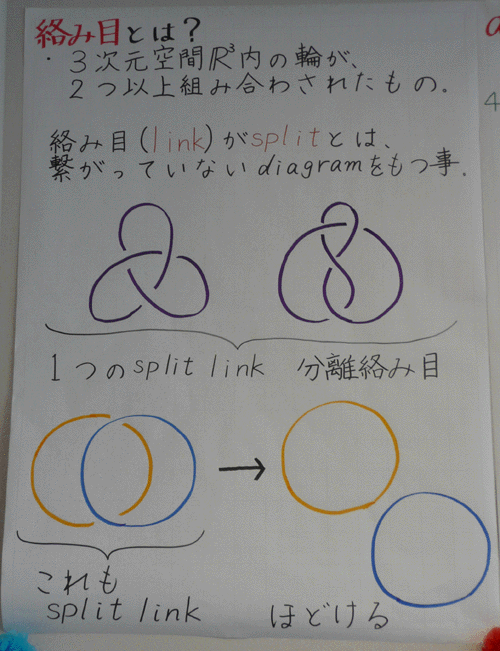 絡み目とは?
・3次元空間ℝ³内の輪が、
2つ以上組み合わされたもの.
絡み目(link)がsplitとは、
繋がっていないdiagramをもつ事.
1つのsplit link 分離絡み目
これも
split link
ほどける
4